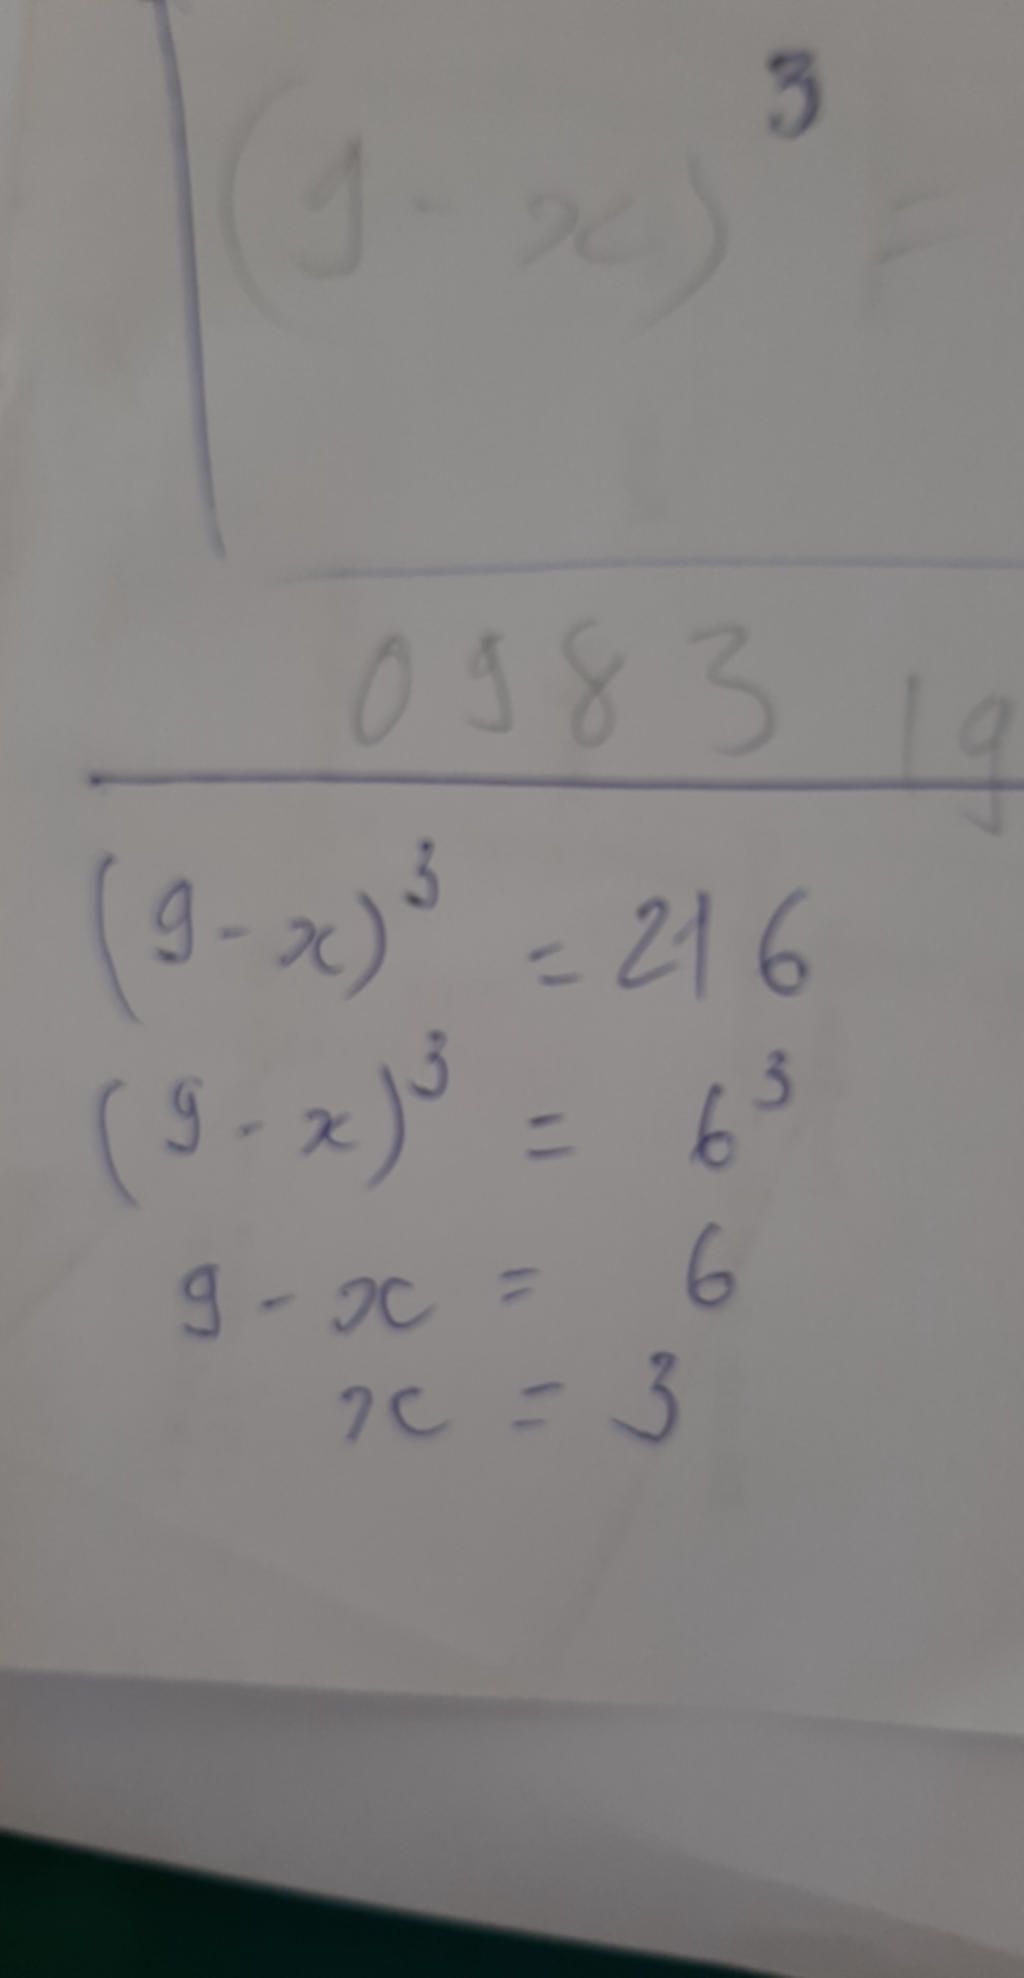 (9 - x)³ =
0983 19
(9 - x)³ = 216
(9 - x)³ = 6³
9 - x = 6
x = 3